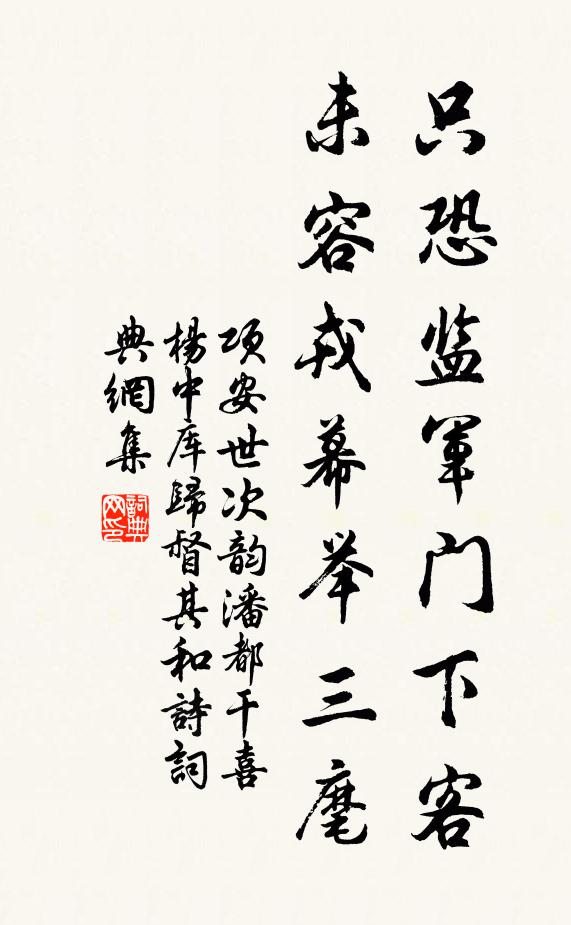 只恐监軍门下客
未容戎幕举三麾
项安世次韵潘都干喜
楊中库歸督其和詩詞
典網集
詞典网印